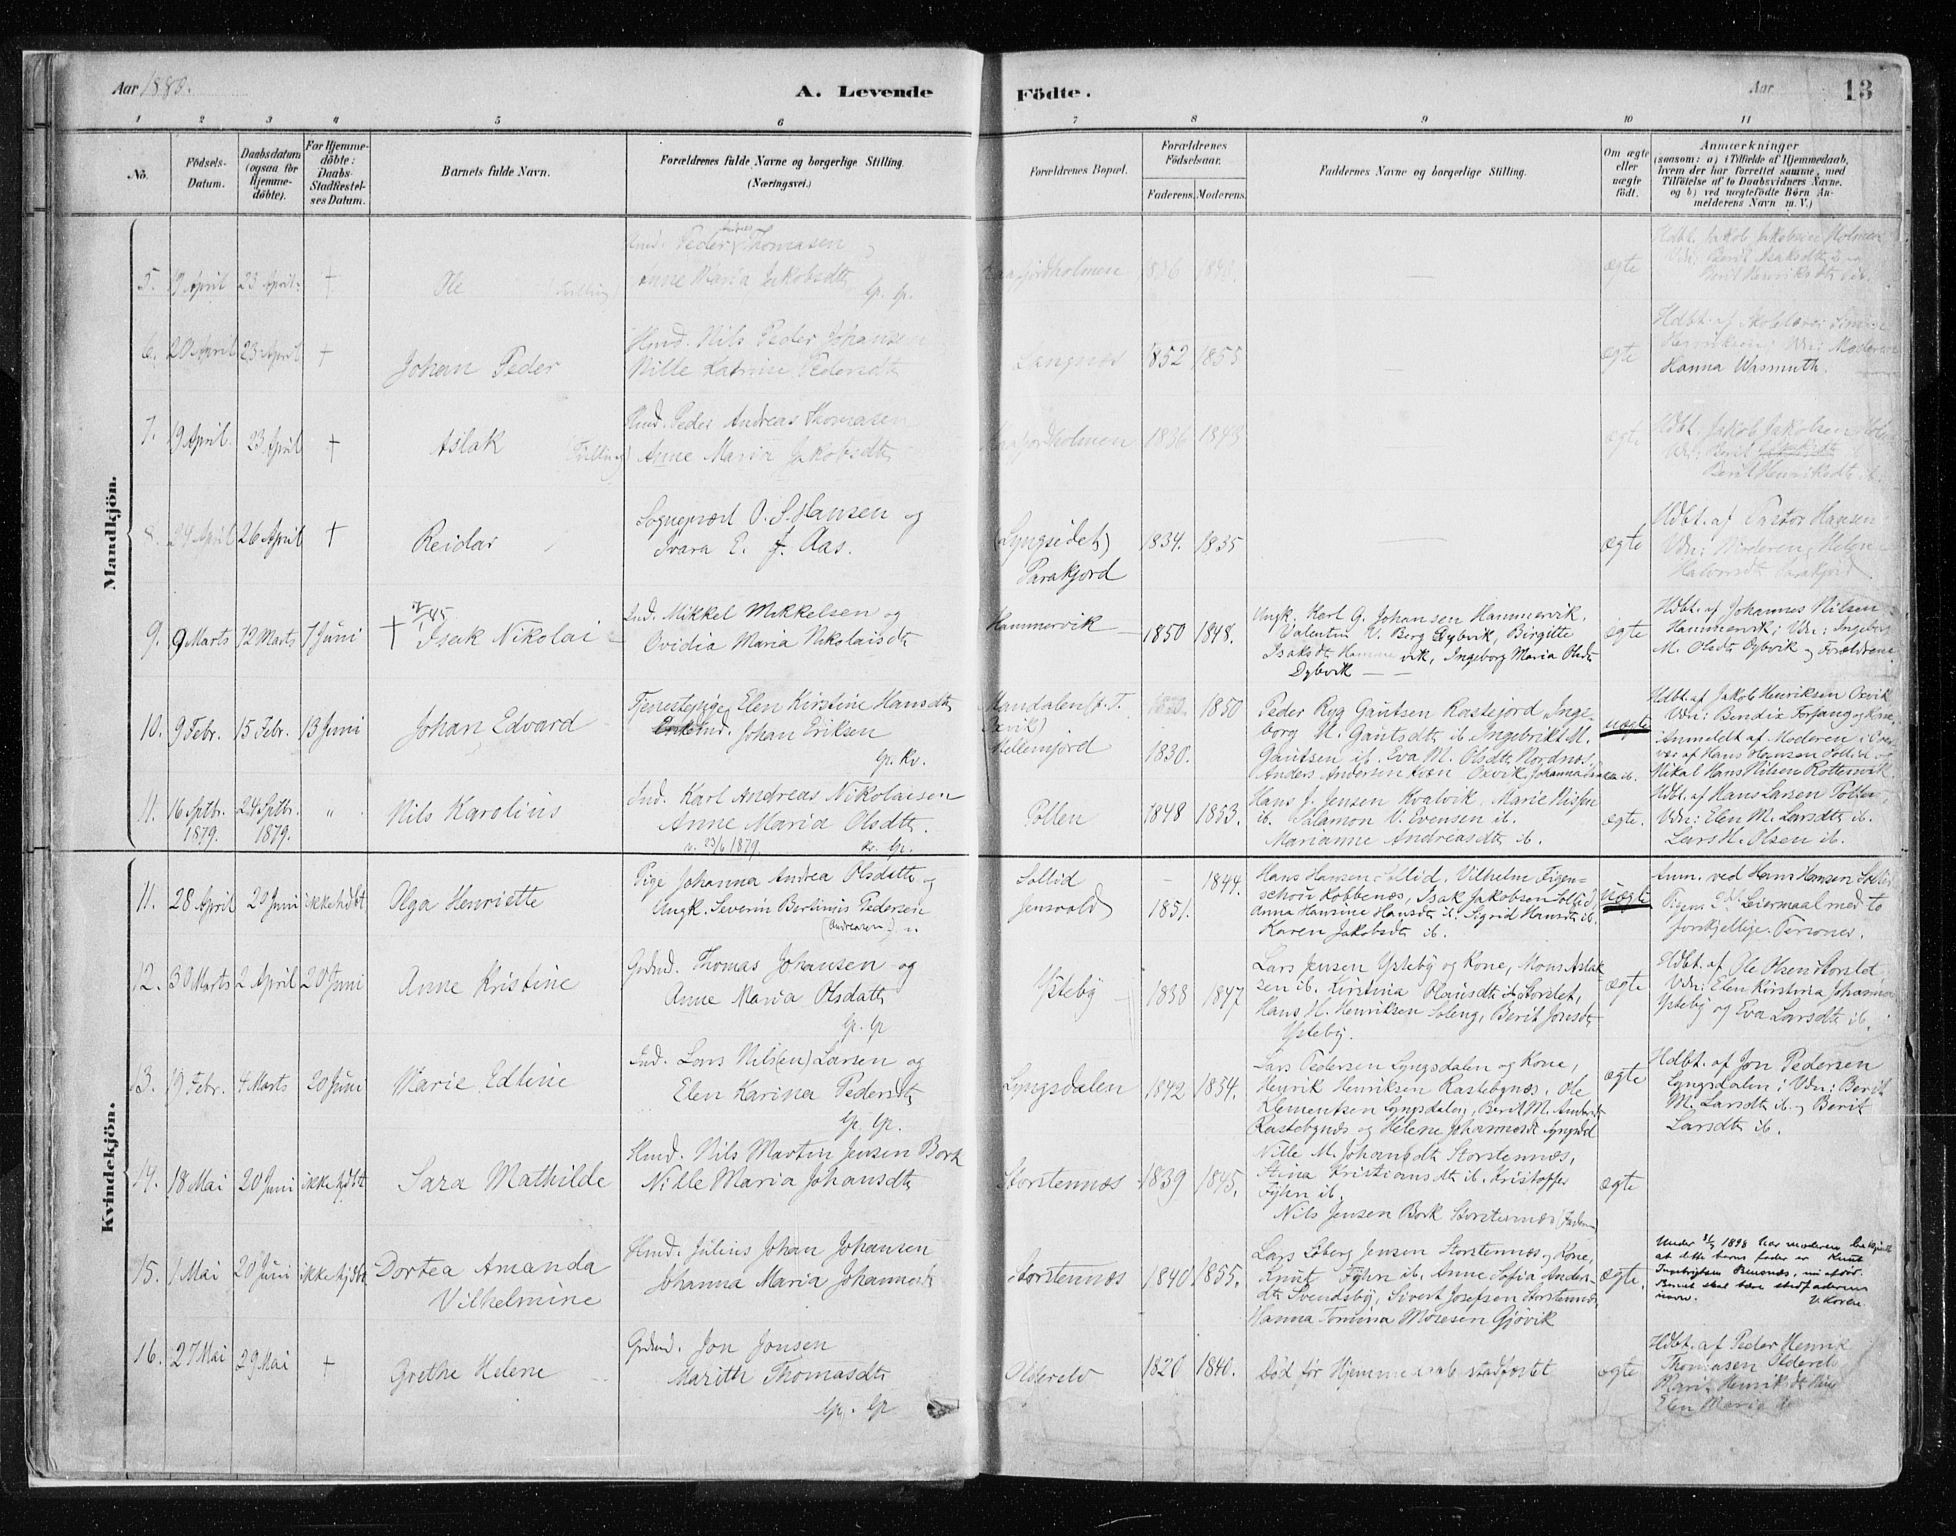 Aar 1880.
A. Levende Födte.
Aar
13
1 2 3 4 5 6 7 8 9 10 11
No.
Födsels-Datum.
Daabsdatum (ogsaa for Hjemme-döbte).
For Hjemme-döbte: Daabs-Stadfæstel-ses Datum.
Barnets fulde Navn.
Forældrenes fulde Navne og borgerlige Stilling. (Næringsvei.)
Forældrenes Bopæl.
Forældrenes Födselsaar.
Faderens. Moderens.
Faddernes Navne og borgerlige Stilling.
Om ægte eller uægte födt.
Anmærkninger
(saasom: a) i Tilfælde af Hjemmedaab,
hvem der har forrettet samme, med
Tilföielse af to Daabsvidners Navne.
og b) ved uegtefödte Börn An-
melderens Navn m. V.)
Mandkjön.
5. 19 April 23 April †
Ole (Trilling)
Peder Andreas Thomasen
Anne Maria Jakobsdtr
1836 1843
ægte
Hdbt. Jakob Jakobsen Holmen
Berit Henriksdtr ib.
6. 20 April 23 April †
Johan Peder
Nils Peder Johansen
Nille Katrine Pedersdtr
Langnæs 1852 1855
ægte
Hdbt. af
Vdn: Moderen
Hanna Wasmuth.
7. 19 April 23 April †
Aslak (Trilling)
Peder Andreas Thomasen
Anne Maria Jakobsdtr
1836 1843
ægte
Hdbt. Jakob Jakobsen
Berit Henriksdtr ib.
8. 24 April 26 April †
Reidar
Sogneprest O. S. Hansen og
Ivara E. J. Aas.
(Lyngseidet)
Parakjord
1834. 1835
ægte
Hdbt. af Pastor Hansen
Vdn: Moderen, Helene
9. 9 Marts 12 Marts 7 Juni
† Isak Nikolai
Ind. Mikkel Mikkelsen og
Ovidia Maria Nikolaisdtr
Hammervik
1850 1848.
Ungk. Karl G. Johansen Hammervik.
Valentin V. Berg Dybvik, Birgitte
Isaksdtr Hammervik, Ingeborg Maria Olsdtr
Dybvik
ægte
Hdbt. af Johannes Nilsen
Hammervik; Vdn: Ingeborg
M. Olsdtr Dybvik og Forældrene
10. 9 Febr. 15 Febr. 13 Juni
Johan Edvard
Tjenestepige Elen Kirstine Hansdtr
Johan Eriksen
gp. kv.
1850
1830.
Peder Ryg Gautsen Rastefjord, Inge-
borg N. Gautsdtr ib. Ingebrikt M.
Gautsen ib. Eva M. Olsdtr Nordnæs,
Anders Andersen Kven Oxvik, Johanna
uægte
Hdbt. af Jakob Henriksen Oxvik
Vdn: Bendix Forfang og Kone,
Anmeldt af Moderen
Mikal Hans Nilsen Rottenvik
11. 16 Sptbr. 1879. 24 Sptbr. 1879. "
Nils Karolius
Ind. Karl Andreas Nikolaisen
Anne Maria Olsdtr.
v. 23/6 1879. kv. gp.
Pollen
1848 1853.
Hans J. Jensen Kvalvik, Marie Nilsen
ib. Salamon V. Evensen ib.
Marianne Andreasdtr ib.
ægte.
Hdbt. af Hans Larsen Pollen,
Vdn: Elen M. Larsdtr ib.
Lars H. Olsen ib.
Kvindekjön.
11. 28 April 20 Juni ikke hjdbt
Olga Henriette
Pige Johanna Andrea Olsdatter og
Ungk. Severin Bertinius Pedersen
(Andreassen)
Sollid
Jensvold
1844.
1851.
Hans Hansen Sollid, Vilhelm Figen-
schou Kobbenæs, Isak Jakobsen Sollid,
Anna Hansine Hansdtr ib. Sigrid Hansdtr ib.
Karen Jakobsdtr ib.
uægte
Anm. ved Hans Hansen Sollid
Pigens 2det Leiermaal med to
forskjellige Personer.
12. 30 Marts 2 April 20 Juni
Anne Kristine
Grdmd. Thomas Johansen og
Anne Maria Olsdatter
Lp. Lp
Ysteby
1838 1847
Lars Jensen Ysteby og Kone, Mons Aslak-
sen ib. Kirstina Olausdtr Storslet,
Hans H. Henriksen Soleng, Berit Jonsdtr
Ysteby.
ægte
Hdbt. af Ole Olsen Storslet
Vdn: Elen Kirstina Johanna
Ysteby og Eva Larsdtr ib.
13. 19 Febr. 4 Marts 20 Juni
Marie Edline
Ind. Lars Nils(en) Larsen og
Elen Karina Pedersdtr
Lp. Lp.
Lyngsdalen
1842 1854.
Lars Pedersen Lyngsdalen og Kone,
Henrik Henriksen Rastebynæs, Ole
Klementsen Lyngsdalen, Berit M. Andersdtr
Rastebynæs og Helene Johannesdtr Lyngsdal
ægte
Hdbt. af Jon Pedersen
Lyngsdalen; Vdn: Berit
M. Larsdtr ib. og Berit
Larsdtr ib.
14. 18 Mai 20 Juni ikke hjdbt
Sara Mathilde
Hmd. Nils Martin Jensen Bork
Nille Maria Johansdtr
Storstennæs
1839 1845.
Nille M. Johansdtr Storstennæs,
Stina Kristiansdtr ib. Kristoffer
Fyhn ib.
Nils Jensen Bork Storstennæs (Faderen)
ægte
15. 1 Mai 20 Juni ikke hjdbt
Dortea Amanda
Vilhelmine
Hmd. Julius Johan Johansen
Johanna Maria Johannesdtr
Storstennæs
1840 1855.
Lars Soberg Jensen Storstennæs og Kone,
Knut Fyhn ib. Anne Sofia Anders-
dtr Svendsby, Sivert Josefsen Storstennæs,
Hanna Tomina Moresen Gjövik
ægte.
Under 1898 har moderen beskjendt
at dette barns fader er Knut
Ingebrigtsen nu afdöd.
Barnet skal bære stedfaderens
navn. V. Koren
16. 27 Mai 29 Mai †
Grethe Helene
Grdmd. Jon Jonsen
Marith Thomasdtr
Lp. Lp
Olderelv
1820 1840.
Död för Hjemmedaab stadfæstet
ægte
Hdbt. af Peder Henrik
Thomasen Olderelv
Marit Henriksdtr
Elen Maria